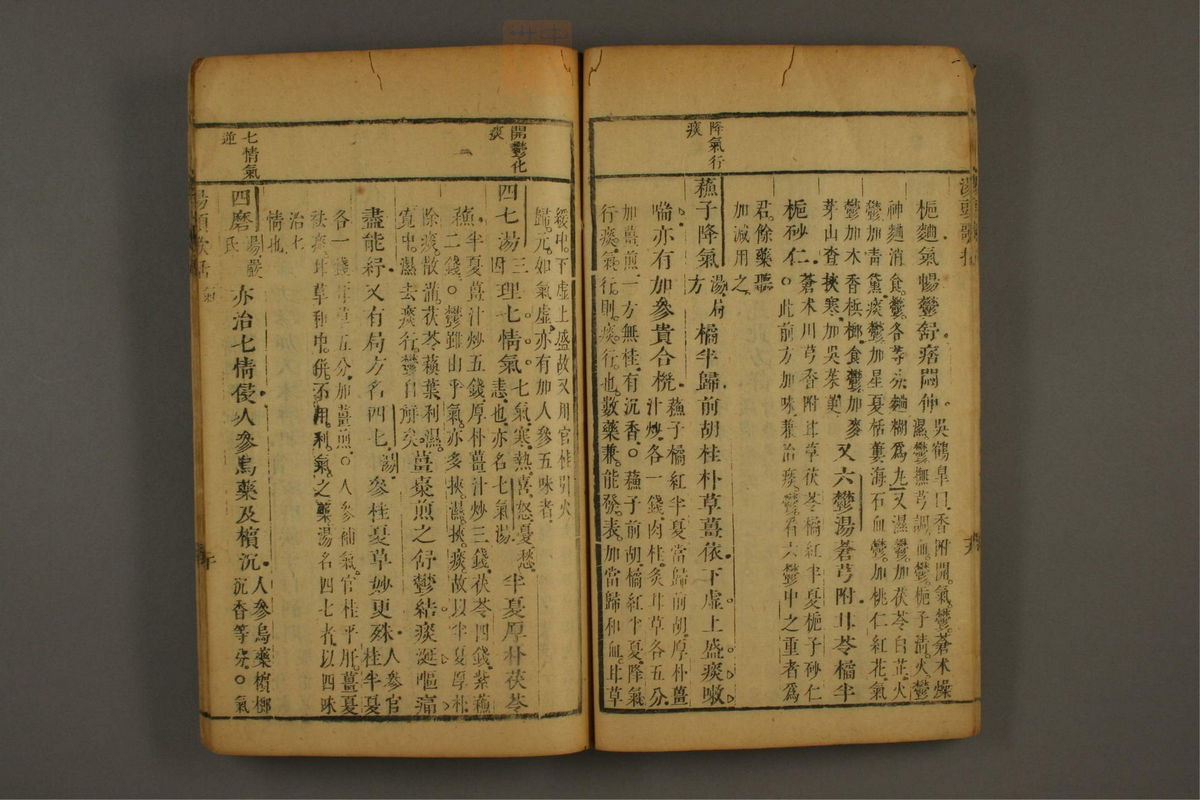 湯頭歌括
降氣行
痰
梔麯氣暢鬱舒痞悶伸吳鶴皋曰香附開氣鬱蒼术燥
濕鬱撫芎調血鬱梔子清火鬱
神麯消食鬱各等分麯糊爲丸又濕鬱加茯苓白芷火
鬱加青黛痰鬱加星夏栝蔞海石血鬱加桃仁紅花氣
鬱加木香檳榔食鬱加麥
芽山查挾寒加吳茱萸
又六鬱湯蒼芎附甘苓橘半
梔砂仁蒼术川芎香附甘草茯苓橘紅半夏梔子砂仁
○此前方加味兼治痰鬱看六鬱中之重者爲
君餘藥聽
加減用之
蘓子降氣湯局方橘半歸前胡桂朴草薑依下虛上盛痰嗽
喘亦有加參貴合機蘓子橘紅半夏當歸前胡厚朴薑
汁炒各一錢肉桂炙甘草各五分
加薑煎一方無桂有沉香○蘓子前胡橘紅半夏降氣
行痰氣行則痰行也數藥兼能發表加當歸和血甘草
緩中下虛上盛故又用官桂引火
歸元如氣虛亦有加人參五味者
開鬱化
痰
四七湯三因理七情氣七氣寒熱喜怒憂愁
恚也亦名七氣湯
半夏厚朴茯苓
蘓半夏薑汁炒五錢厚朴薑汁炒三錢茯苓四錢紫蘓
二錢○鬱雖由乎氣亦多挾濕挾痰故以半夏厚朴
除痰散滿茯苓蘓葉利濕
寬中濕去痰行鬱自解矣
薑棗煎之舒鬱結痰涎嘔痛
盡能紓又有局方名四七湯參桂夏草妙更殊人參官
桂半夏
各一錢甘草五分加薑煎○人參補氣官桂平肝薑夏
祛痰甘草和中倂不用利氣之藥湯名四七者以四味
治七
情也
七情氣
逆
四磨湯嚴氏亦治七情侵人參烏藥及檳沉人參烏藥檳榔
沉香等分○氣